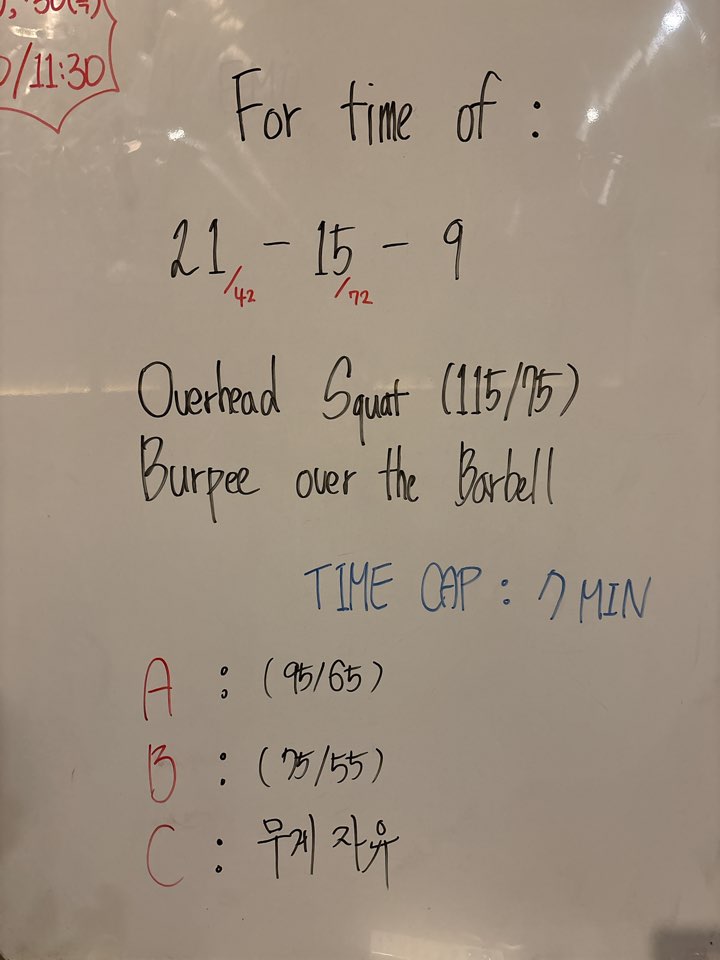 /11:30
For time of :
21 - 15 - 9
/42 /72
Overhead Squat (115/75)
Burpee over the Barbell
TIME CAP : 7 MIN
A : (95/65)
B : (75/55)
C : 무게 자유